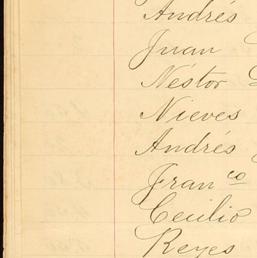 Andrés
Juan
Néstor
Nieves
Andrés
Franco
Cecilio
Reyes